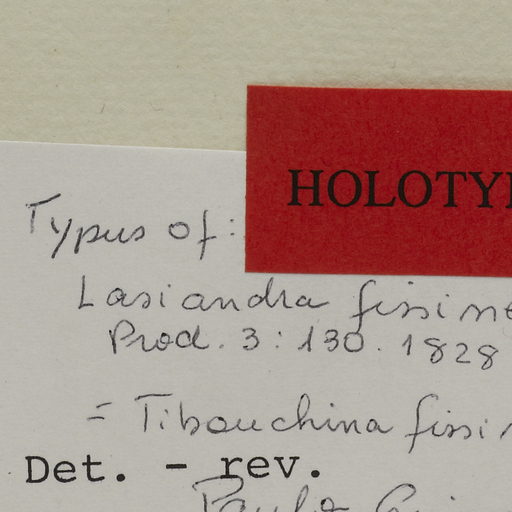 HOLOTY
Typus of:
Lasiandra fissine
Prod. 3: 130. 1828
= Tibouchina fissi
Det. - rev.
Paulo